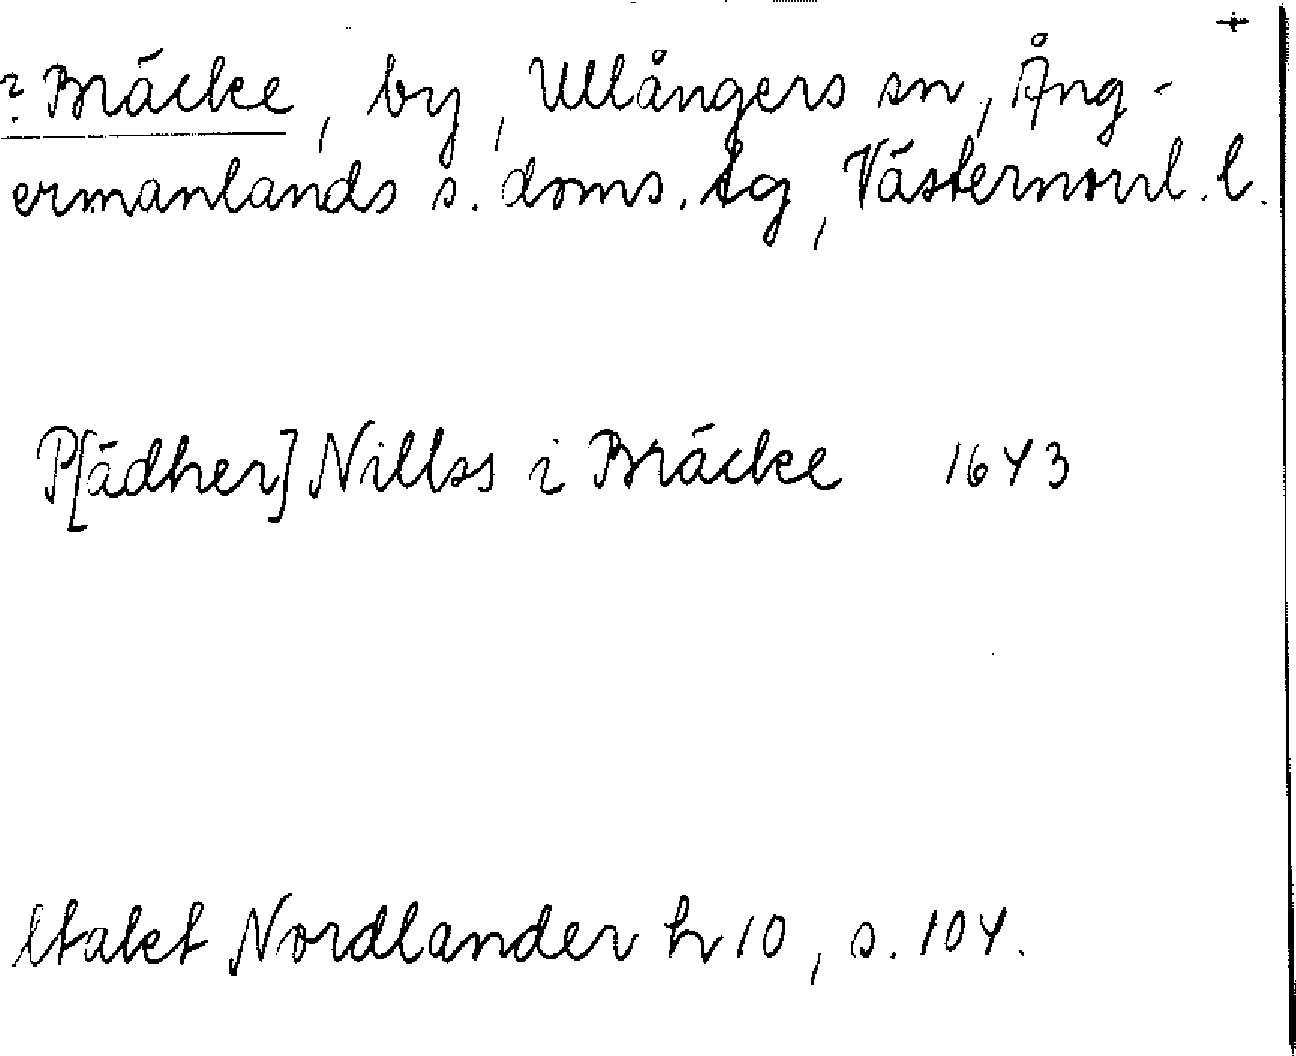 +
? Bräcke, by, Ullångers sn, Ång-
ermanlands s. doms. tg, Västernorrl. l.
P[ädher] Nillss i Bräcke 1643
Utalet Nordlander h 10, s. 104.